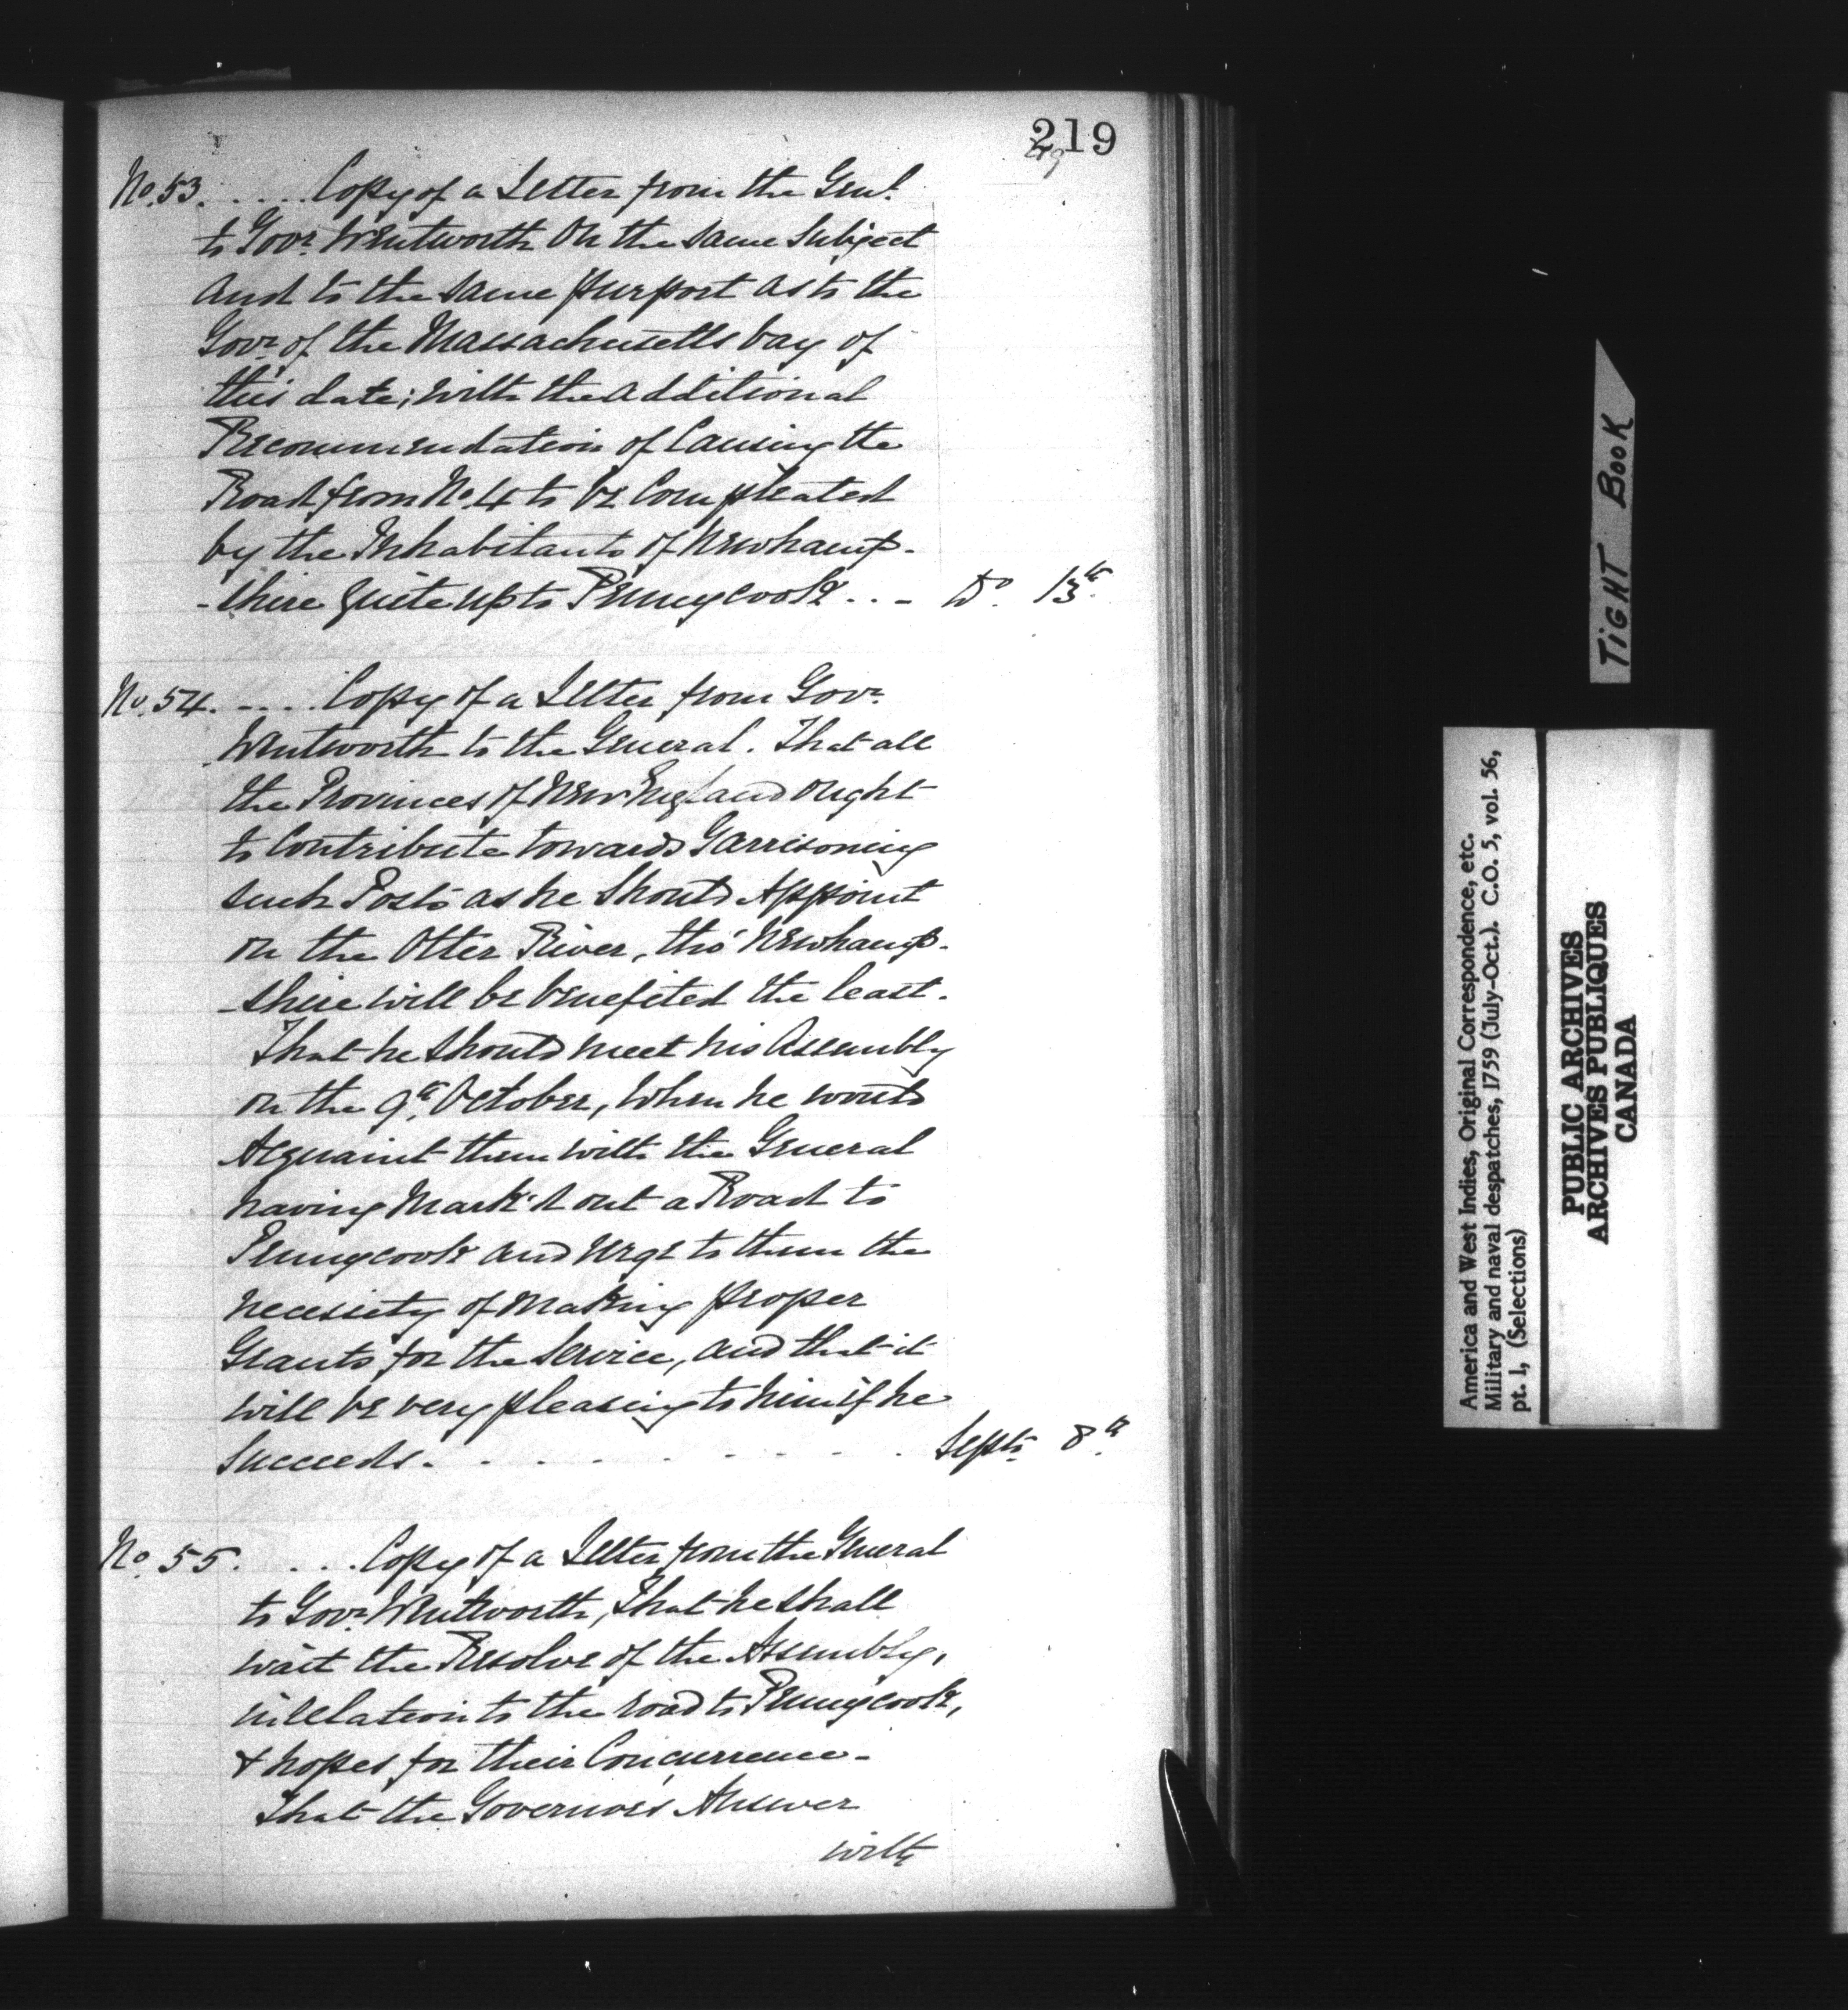 219
219
No. 53. . . . . . Copy of a Letter from the Genl.
to Govr. Wentworth On the same Subject
And to the same purport as to the
Govr. of the Massachusetts bay of
this date; with the additional
Recommendation of Causing the
Road from No. 4 to be Compleated
by the Inhabitants of Newhamp-
-shire quite up to Pennycook . . - Do. 13th.
No. 54. - . . . . Copy of a Letter from Govr.
Wentworth to the General. That all
the Provinces of New England ought
to Contribute towards Garrisoning
such Posts as he Should Appoint
on the Otter River, tho' Newhamp-
-shire will be benefited the least.
That he should meet his Assembly
on the 9th. October, When he would
Acquaint them with the General
having Mark'd out a Road to
Pennycook and Urge to them the
necessity of Making proper
Grants for the Service, and that it
will be very pleasing to him if he
Succeeds. . . . . . . . . Septr. 8th.
No. 55. . . . . Copy of a Letter from the General
to Govr. Wentworth, That he shall
wait the Resolve of the Assembly,
in relation to the road to Pennycook,
& hopes for their Concurrence -
That the Governor's Answer
with
TIGHT BOOK
America and West Indies, Original Correspondence, etc.
Military and naval despatches, 1759 (July-Oct.). C.O. 5, vol. 56,
pt. 1, (Selections)
PUBLIC ARCHIVES
ARCHIVES PUBLIQUES
CANADA